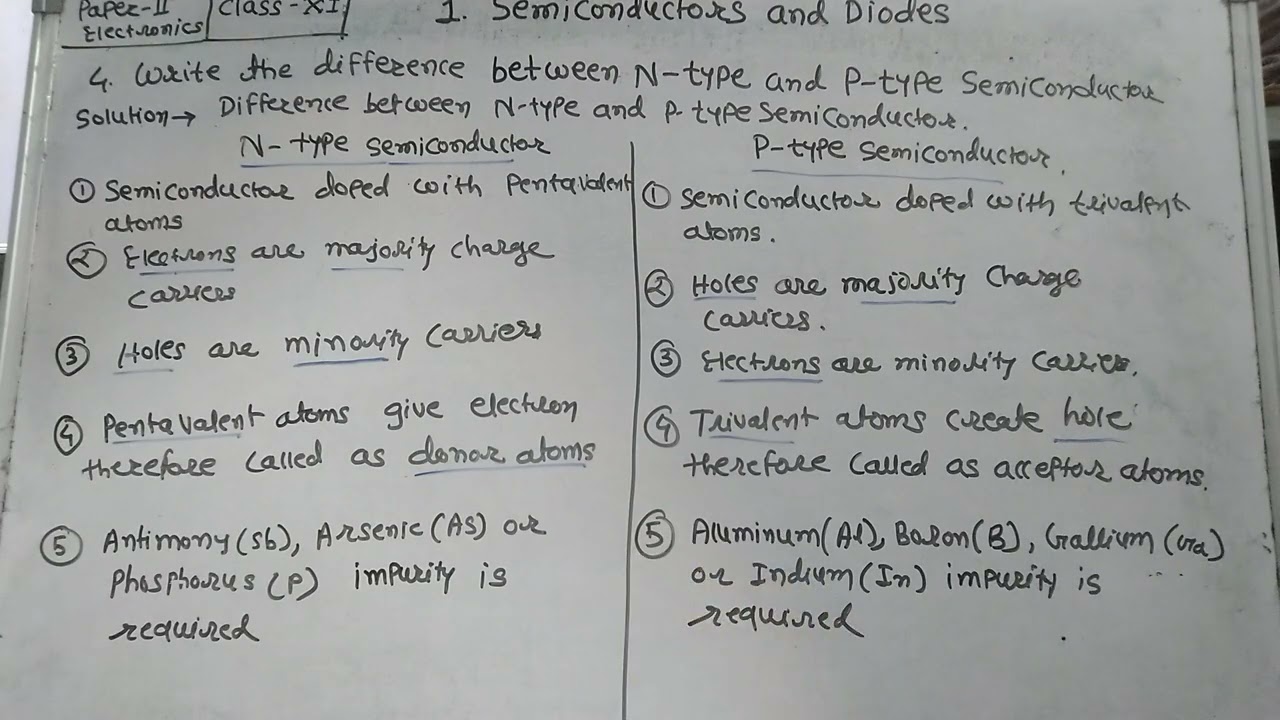 Paper-II
Electronics
Class-XI
1. Semiconductors and Diodes
4. Write the difference between N-type and P-type Semiconductor
Solution→ Difference between N-type and P-type Semiconductor.
N-type semiconductor
① Semiconductor doped with Pentavalent
atoms
② Electrons are majority charge
carriers
③ Holes are minority carriers
④ Pentavalent atoms give electron
therefore called as donor atoms
⑤ Antimony(Sb), Arsenic(As) or
Phosphorus(P) impurity is
required
P-type semiconductor.
① Semiconductor doped with trivalent
atoms.
② Holes are majority Charge
Carriers.
③ Electrons are minority carrier.
④ Trivalent atoms create hole
therefore called as acceptor atoms.
⑤ Aluminum(Al), Boron(B), Gallium(Ga)
or Indium(In) impurity is
required